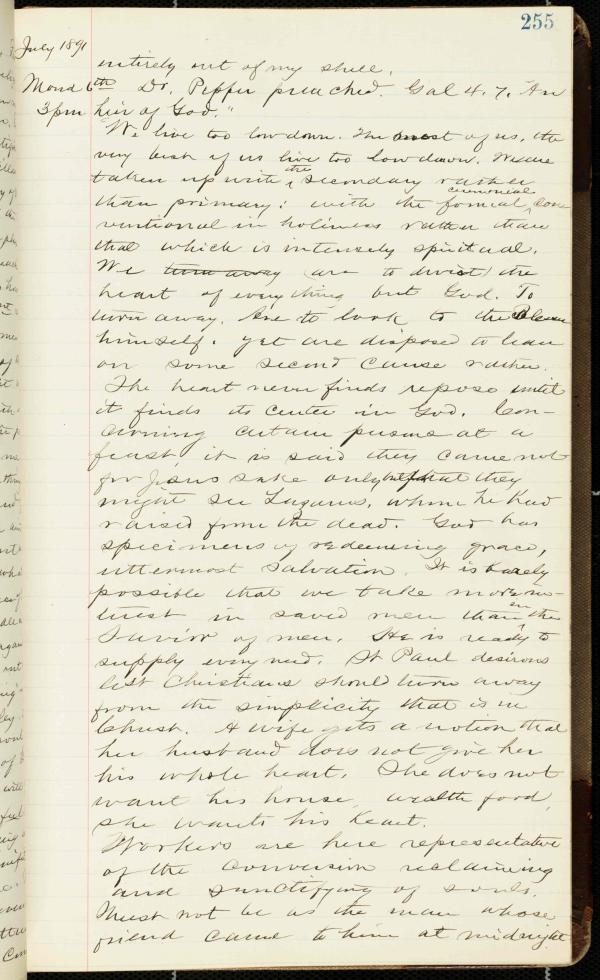 255
July 1891
entirely out of my shell.
Mond 6th Dr. Pepper preached. Gal 4. 7. "An
3pm heir of God."
"We live too low down. The most of us, the
very best of us live too low down. We are
taken up with the secondary rather
than primary: with the formal, ceremonial con
ventional in holiness rather than
that which is intensely spiritual.
We turn away (are to divest) the
heart of everything but God. To
turn away. Are to look to the
himself. yet are disposed to lean
on some second cause rather.
The heart never finds repose until
it finds its center in God. Con-
cerning certain persons at a
feast, it is said they came not
for Jesus sake only but that they
might see Lazarus, whom he had
raised from the dead. God has
specimens of redeeming grace,
uttermost salvation. It is barely
possible that we take more in-
terest in saved men than in the
Savior of men. He is ready to
supply every need. St Paul desirous
lest Christians should turn away
from the simplicity that is in
Christ. A wife gets a notion that
her husband does not give her
his whole heart. She does not
want his house, wealth food,
she wants his heart.
Workers are here representative
of the conversion reclaiming
and sanctifying of souls.
Must not be as the man whose
friend came to him at midnight